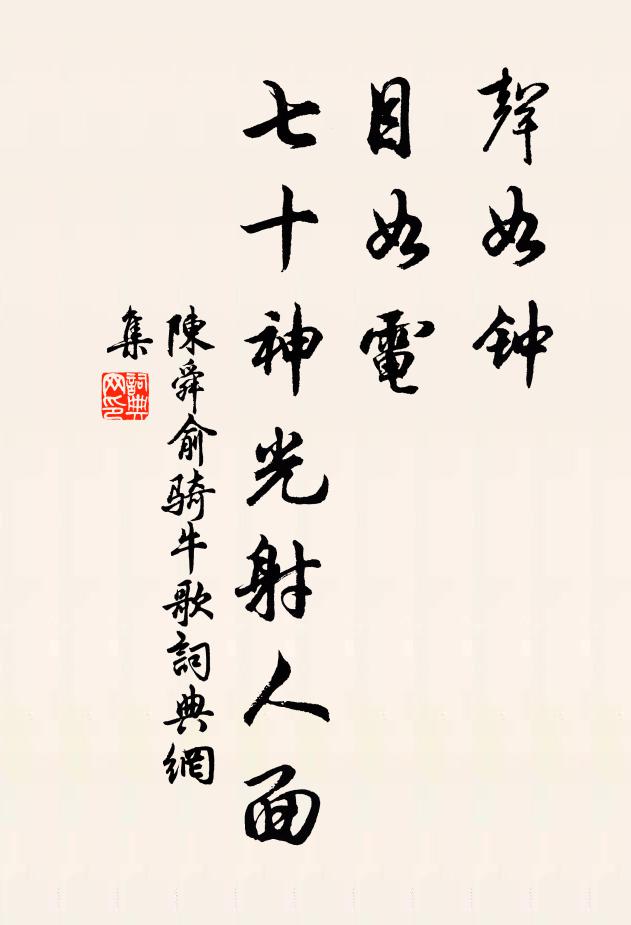 聲如钟
目如電
七十神光射人面
陳舜俞骑牛歌詞典網
集
詞典网印